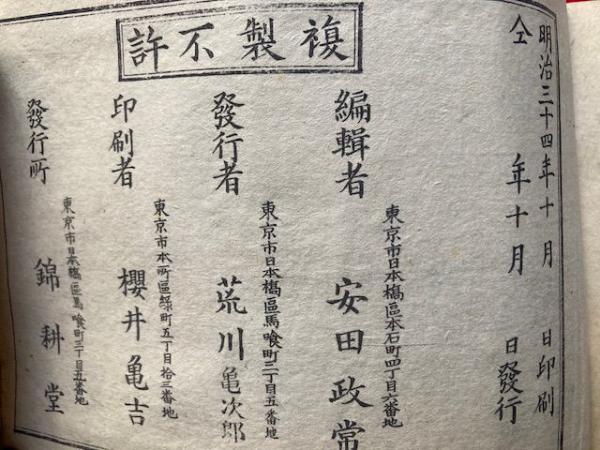 明治三十四年十月　日印刷
仝　年十月　日發行
許不製複
編輯者
東京市日本橋區本石町四丁目六番地
安田政常
發行者
東京市日本橋區馬喰町三丁目五番地
荒川亀次郎
印刷者
東京市本所區緑町五丁目拾三番地
櫻井亀吉
發行所
東京市日本橋區馬喰町三丁目五番地
錦耕堂